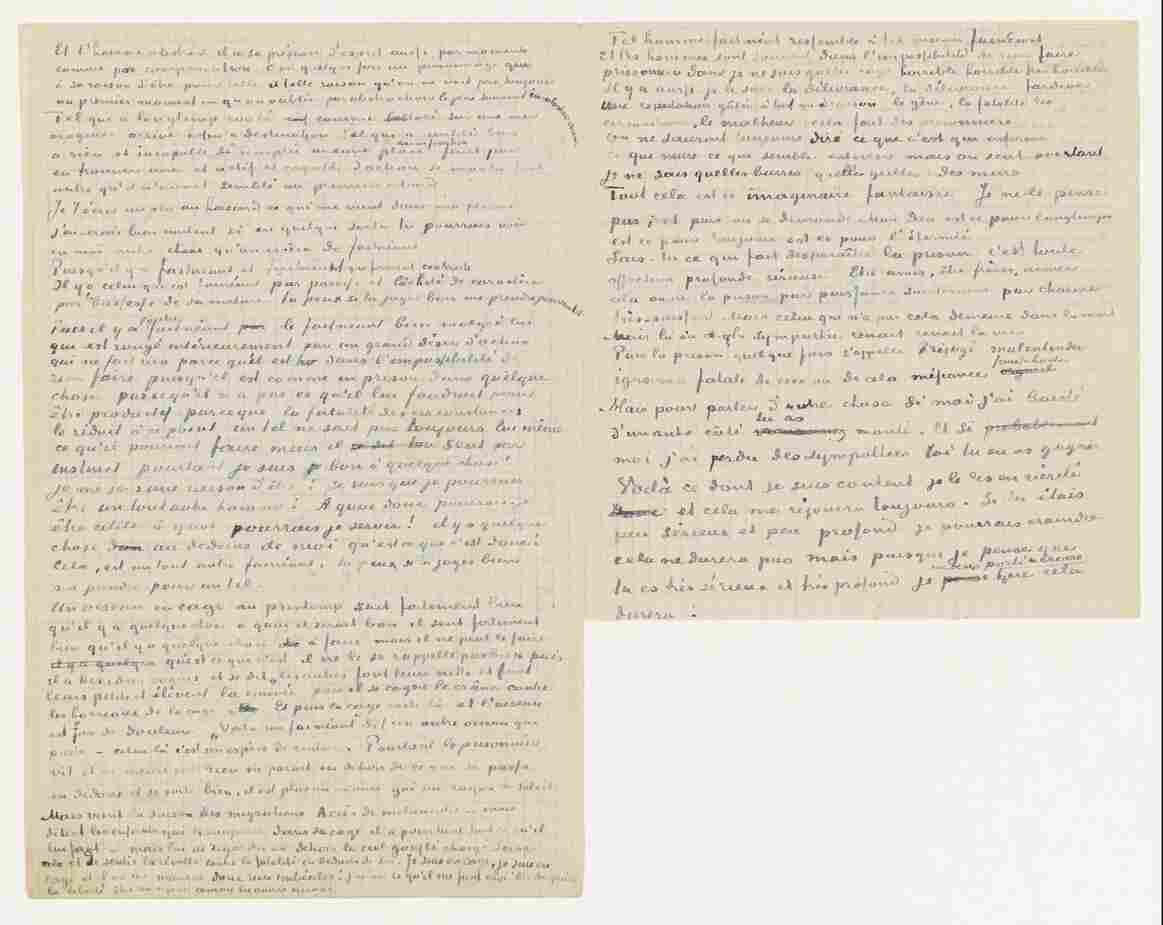 Et l'homme absorbé il a sa présence d'esprit aussi par moments
comme par compensation. C'est quelquefois un personnage qui
a sa raison d'être pour telle et telle raison qu'on ne voit pas toujours
au premier moment ou qu'on oublie par absorbtion le plus souvent
Tel qui a longtemps roulé comme balloté sur une mer
orageuse arrive enfin à destination tel qui a semblé bon
à rien et incapable de remplir aucune place aucune fonction finit par
en trouver une et actif et capable d'action se montre tout
autre qu'il n'avait semblé au premier abord
Je t'écris un peu au hasard ce qui me vient dans ma plume
j'en serais bien content si en quelque sorte tu pourrais voir
en moi autre chose qu'un espèce de fainéant
Puisqu'il y a fainéant et fainéant qui forment contraste
Il y a celui qui est fainéant par paresse et lâcheté de caractère
par la bassesse de sa nature tu peux si tu juges bon me prendre pour un tel
Puis il y a l'autre fainéant le fainéant bien malgré lui
qui est rongé intérieurement par un grand désir d'action
qui ne fait rien parce qu'il est dans l'impossibilité de
rien faire puisqu'il est comme en prison dans quelque
chose parcequ'il n'a pas ce qu'il lui faudrait pour
être productif parceque la fatalité des circonstances
le réduit à ce point un tel ne sait pas toujours lui même
ce qu'il pourrait faire mais il sent par
instinct pourtant je suis bon à quelque chose!
je me sens une raison d'être! Je sais que je pourrais
être un tout autre homme! A quoi donc pourrais-je
être utile à quoi pourrais je servir! il y a quelque
chose au dedans de moi qu'est ce que c'est donc!
Cela, est un tout autre fainéant; tu peux si tu juges bien
me prendre pour un tel.
Un oiseau en cage au printemps sait fortement bien
qu'il y a quelque chose à quoi il serait bon il sent fortement
bien qu'il y a quelque chose à faire mais il ne peut le faire
qu'est ce que c'est il ne se le rappelle pas bien puis
il a des idées vagues et se dit „les autres font leurs nids et font
leurs petits et élèvent la couvée puis il se cogne le crâne contre
les barreaux de la cage Et puis la cage reste là et l'oiseau
est fou de douleur
„Voilà un fainéant" dit un autre oiseau qui
passe – celui là c'est un espèce de rentier. Pourtant le prisonnier
vit et ne meurt pas rien ne parait en dehors de ce qui se passe
en dedans il se porte bien, il est plus ou moins gai au rayon de soleil.
Mais vient la saison des migrations Accès de mélancolie – mais
disent les enfants qui le soignent dans sa cage il a pourtant tout ce qu'il
lui faut – mais lui de regarder au dehors le ciel gonflé chargé d'orage
et de sentir la révolte contre la fatalité en dedans de soi. Je suis en cage, je suis en
cage et il ne me manque donc rien imbéciles! J'ai tout ce qu'il me faut moi! Ah de grâce
la liberté être un oiseau comme les autres oiseaux.
Tel homme fainéant ressemble à tel oiseau fainéant
Et les hommes sont souvent dans l'impossibilité de rien faire
prisonniers dans je ne sais quelle cage horrible horrible très horrible
Il y a aussi je le sais la délivrance, la délivrance tardive
Une réputation gâtée à tort ou à raison, la gêne, la fatalité des
circonstances, le malheur cela fait des prisonniers
On ne saurait toujours dire ce que c'est qui enferme
ce que mure ce que semble enterrer mais on sent pourtant
je ne sais quelles barres quelles grilles des murs
Tout cela est ce imaginaire fantaisie Je ne le pense
pas; et puis on se demande Mon Dieu est ce pour longtemps
est ce pour toujours est ce pour l'éternité
Sais-tu ce qui fait disparaître la prison c'est toute
affection profonde sérieuse Etre amis, être frères, aimer
cela ouvre la prison par puissance souveraine par charme
très puissant Mais celui qui n'a pas cela demeure dans la mort
Mais là où la sympathie renait renait la vie
Puis la prison quelque fois s'appelle Préjugé malentendu
ignorance fatale de ceci ou de cela méfiance fausse honte
Mais pour parler d'autre chose Si moi j'ai baissé
d'un autre côté tu as monté. Et si
moi j'ai perdu des sympathies toi tu en as gagné
Voilà ce dont je suis content je le dis en vérité
et cela me réjouira toujours. Si tu étais
peu sérieux et peu profond je pourrais craindre
cela ne durera pas mais puisque je pense que
tu es très sérieux et très profond je suis porté à croire que cela
durera: